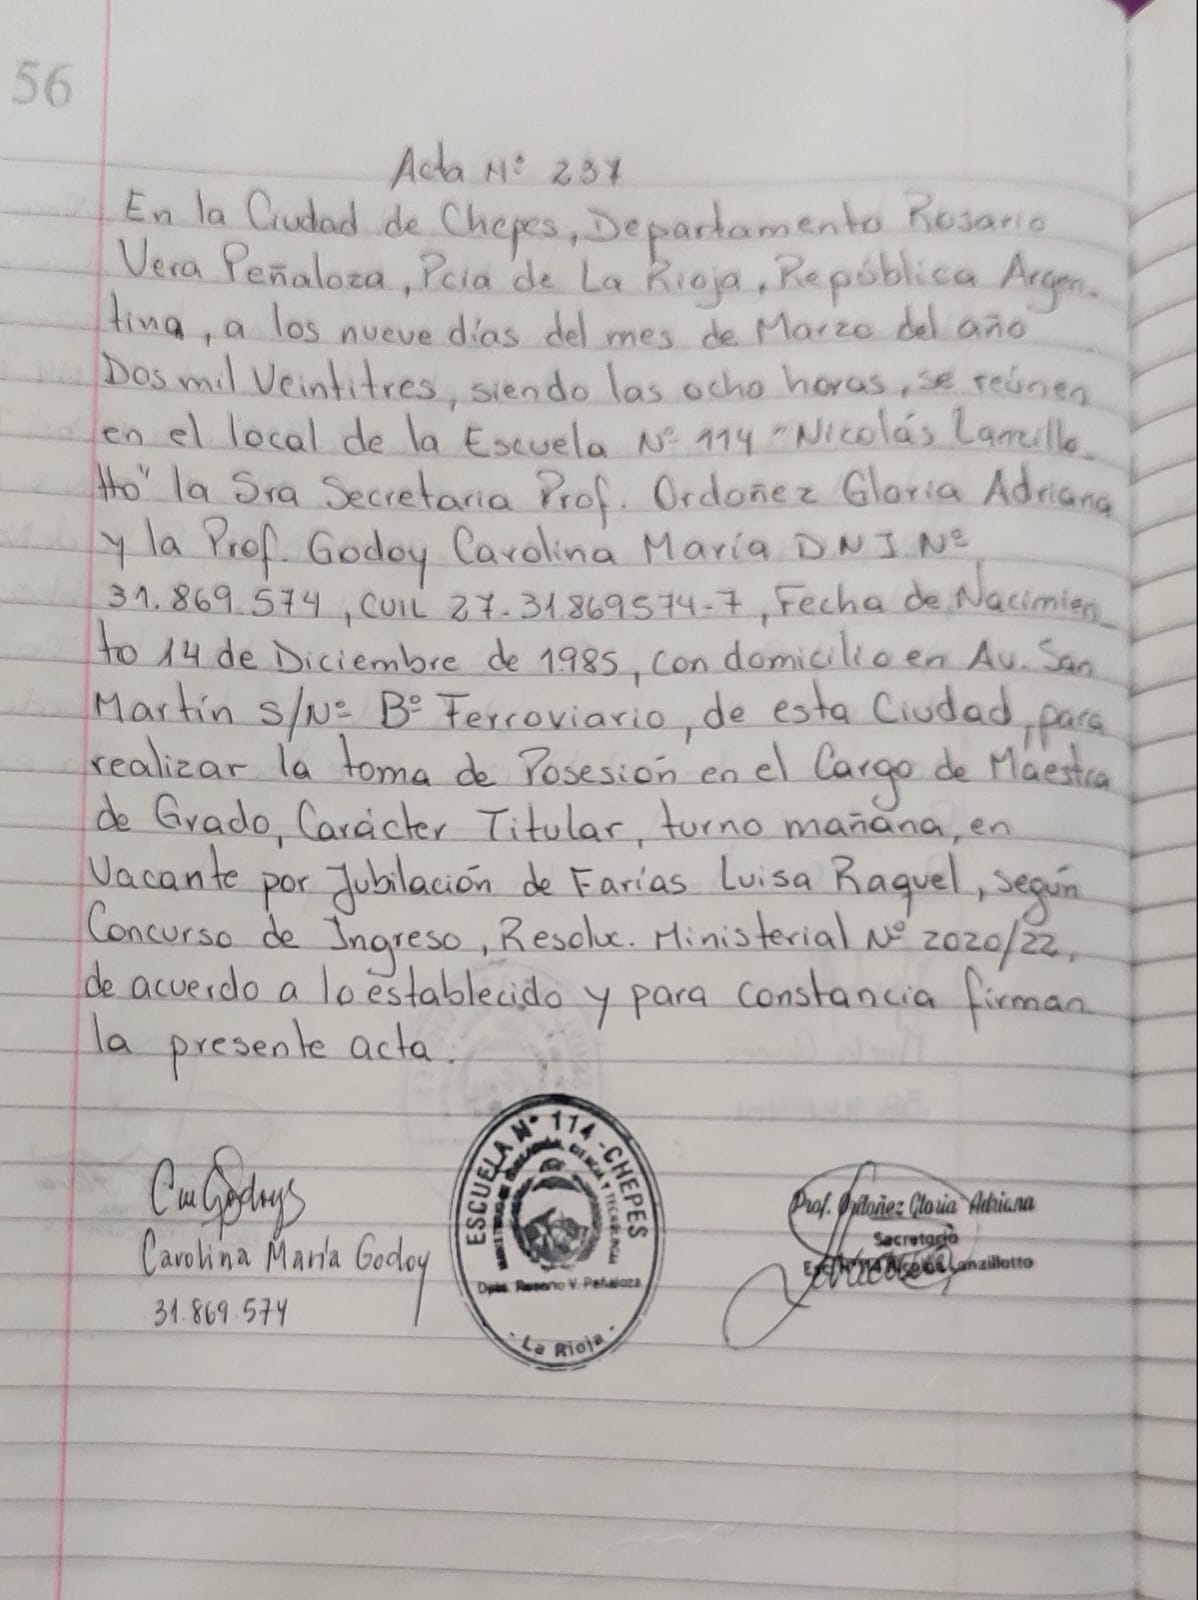 56
Acta Nº 237
En la Ciudad de Chepes, Departamento Rosario
Vera Peñaloza, Pcia de La Rioja, República Argen-
tina, a los nueve días del mes de Marzo del año
Dos mil Veintitres, siendo las ocho horas, se reúnen
en el local de la Escuela Nº 114 "Nicolás Lanzillo-
tto" la Sra Secretaria Prof. Ordoñez Gloria Adriana
y la Prof. Godoy Carolina María DNI Nº
31.869.574, CUIL 27-31869574-7, Fecha de Nacimien-
to 14 de Diciembre de 1985, con domicilio en Av. San
Martín S/Nº Bº Ferroviario, de esta Ciudad, para
realizar la toma de Posesión en el Cargo de Maestra
de Grado, Carácter Titular, turno mañana, en
Vacante por Jubilación de Farías Luisa Raquel, según
Concurso de Ingreso, Resoluc. Ministerial Nº 2020/22,
de acuerdo a lo establecido y para constancia firman
la presente acta.
Carolina María Godoy
31.869.574
ESCUELA Nº 114 - CHEPES
MINISTERIO DE EDUCACIÓN, CIENCIA Y TECNOLOGIA
Dpto. Rosario V. Peñaloza
- La Rioja -
Prof. Ordoñez Gloria Adriana
Secretaria
Esc. Nº 114 Nicolás Lanzillotto